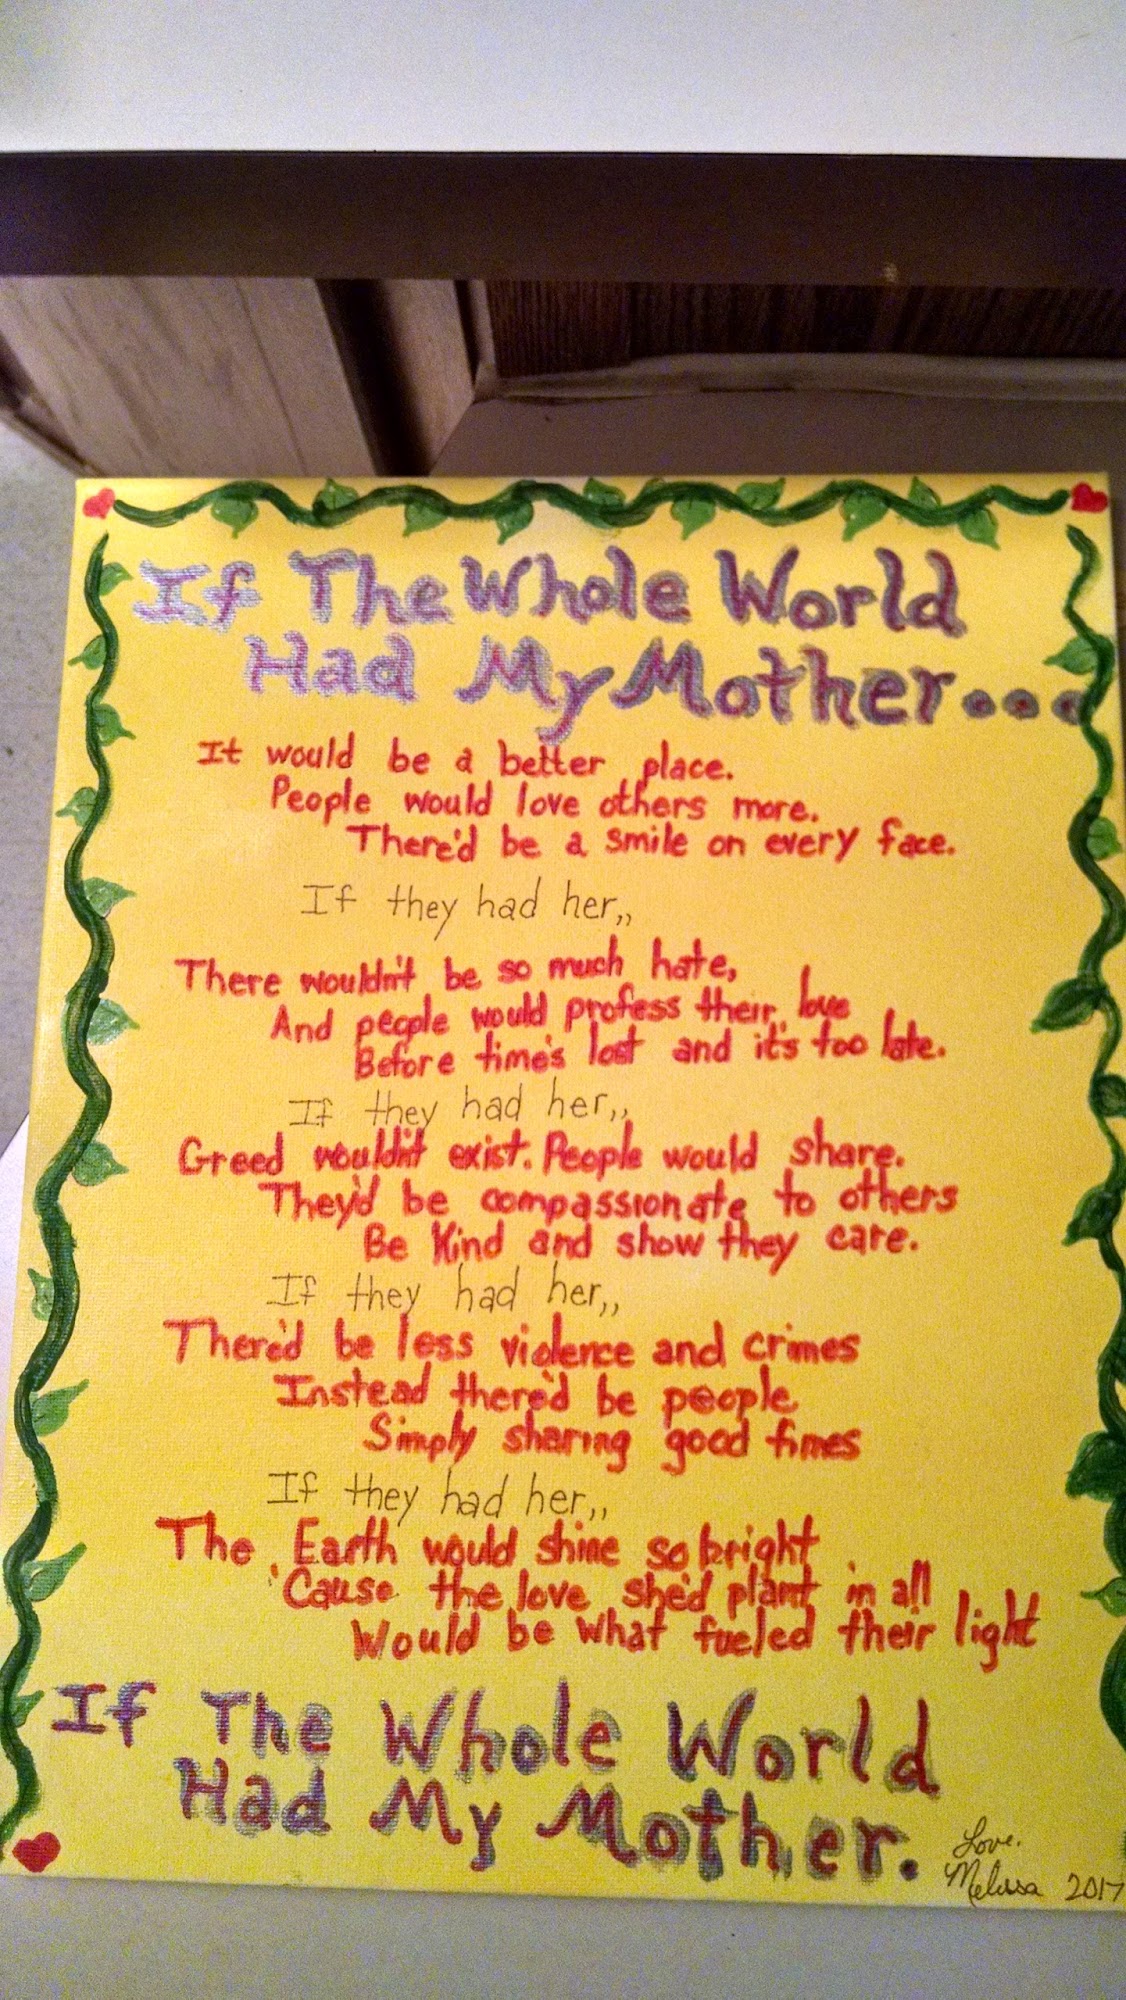 If The Whole World
Had My Mother...
It would be a better place.
People would love others more.
There'd be a smile on every face.
If they had her,,
There wouldn't be so much hate,
And people would profess their love
Before time's lost and it's too late.
If they had her,,
Greed wouldn't exist. People would share.
They'd be compassionate to others
Be Kind and show they care.
If they had her,,
There'd be less violence and crimes
Instead there'd be people
Simply sharing good times
If they had her,,
The Earth would shine so bright
'Cause the love she'd plant in all
Would be what fueled their light
If The Whole World
Had My Mother.
Love,
Melissa 2017